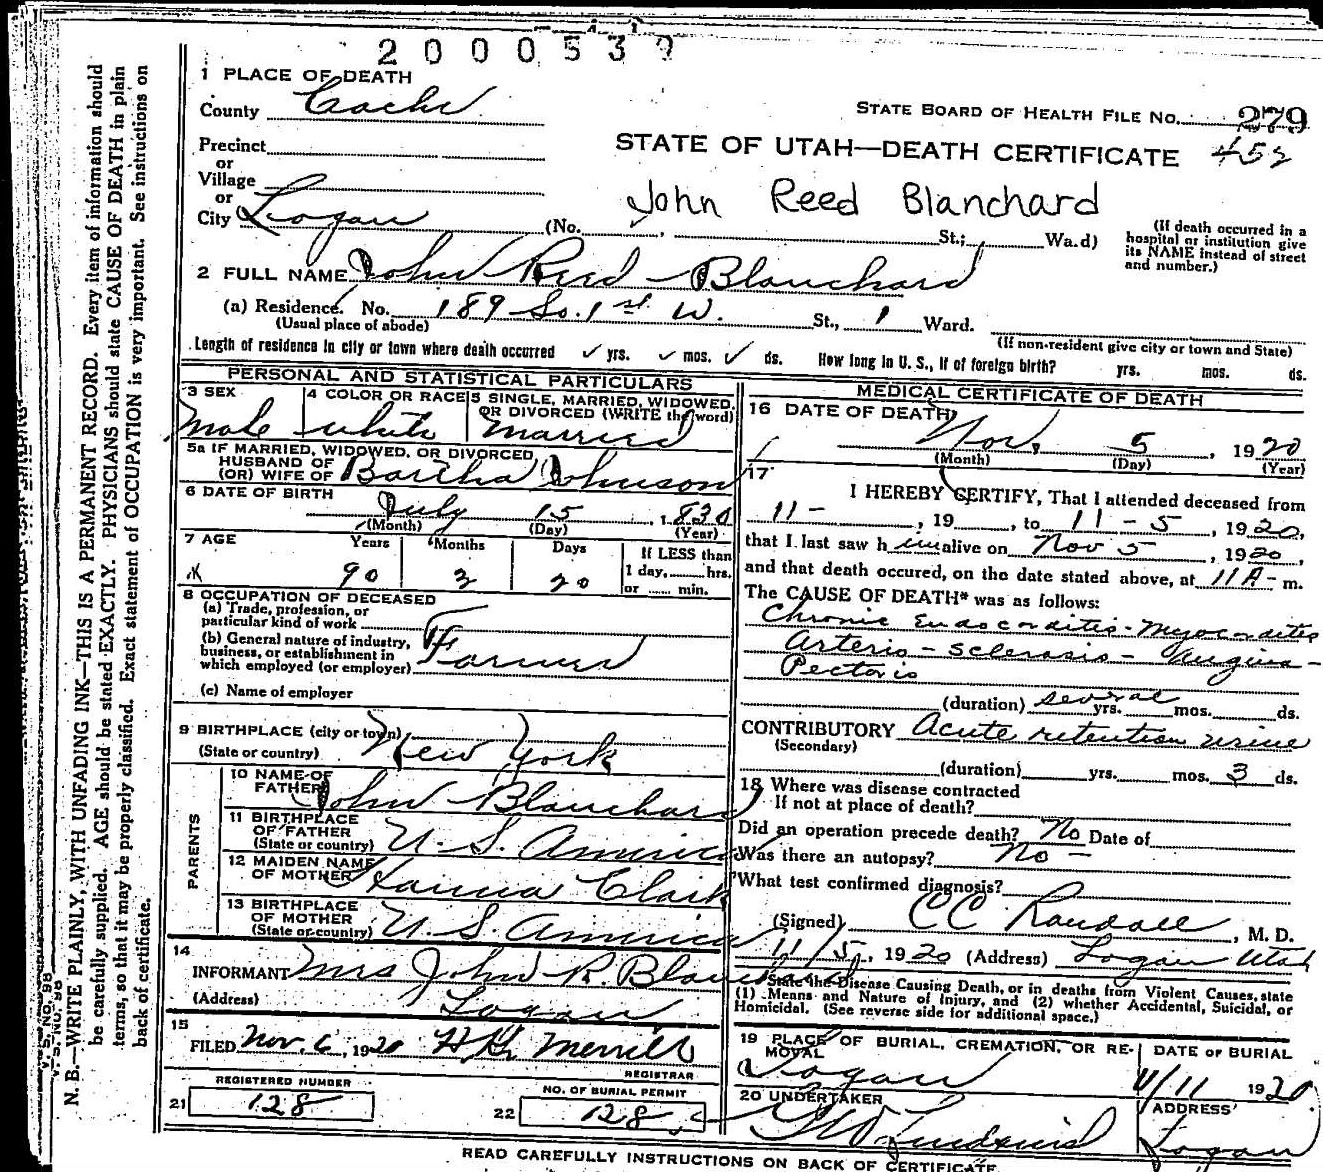 2 0 0 0 5 3 9
1 PLACE OF DEATH
County Cache
STATE BOARD OF HEALTH FILE NO. 279
Precinct
STATE OF UTAH—DEATH CERTIFICATE 452
or
Village
or
John Reed Blanchard
City Logan (No. St.; Wa.d)
(If death occurred in a hospital or institution give its NAME instead of street and number.)
2 FULL NAME John Reed Blanchard
(a) Residence. No. 189 So. 1st. W. St., 1 Ward.
(Usual place of abode) (If non-resident give city or town and State)
Length of residence in city or town where death occurred ✓ yrs. ✓ mos. ✓ ds. How long in U. S., if of foreign birth? yrs. mos. ds.
PERSONAL AND STATISTICAL PARTICULARS
3 SEX 4 COLOR OR RACE 5 SINGLE, MARRIED, WIDOWED,
OR DIVORCED (WRITE the word)
Male white married
5a IF MARRIED, WIDOWED, OR DIVORCED
HUSBAND OF
(OR) WIFE OF Bartha Johnson
6 DATE OF BIRTH
July 15, 1830
(Month) (Day) (Year)
7 AGE Years Months Days If LESS than
1 day, hrs.
90 3 20 or min.
8 OCCUPATION OF DECEASED
(a) Trade, profession, or
particular kind of work
(b) General nature of industry,
business, or establishment in
which employed (or employer) Farmer
(c) Name of employer
9 BIRTHPLACE (city or town)
(State or country) New York
PARENTS
10 NAME OF
FATHER John Blanchard
11 BIRTHPLACE
OF FATHER
(State or country) U. S. America
12 MAIDEN NAME
OF MOTHER Hanna Clark
13 BIRTHPLACE
OF MOTHER
(State or country) U. S. America
14
INFORMANT Mrs John R. Blanchard
(Address) Logan
15
FILED Nov. 6, 1920 Merrill
REGISTRAR
REGISTERED NUMBER NO. OF BURIAL PERMIT
21 128 22 128
MEDICAL CERTIFICATE OF DEATH
16 DATE OF DEATH
Nov, 5, 1920
(Month) (Day) (Year)
17
I HEREBY CERTIFY, That I attended deceased from
11 - , 19 , to 11 - 5, 1920,
that I last saw h im alive on Nov 5, 1920,
and that death occured, on the date stated above, at 11 A- m.
The CAUSE OF DEATH* was as follows:
Chronic Endocarditis - Myocarditis
Arterio - sclerosis - Angina -
Pectoris
(duration) several yrs. mos. ds.
CONTRIBUTORY Acute retention urine
(Secondary)
(duration) yrs. mos. 3 ds.
18 Where was disease contracted
If not at place of death?
Did an operation precede death? No Date of
Was there an autopsy? No -
What test confirmed diagnosis?
(Signed) CC Randall, M. D.
11/5, 1920 (Address) Logan Utah
*State the Disease Causing Death, or in deaths from Violent Causes, state
(1) Means and Nature of Injury, and (2) whether Accidental, Suicidal, or
Homicidal. (See reverse side for additional space.)
19 PLACE OF BURIAL, CREMATION, OR RE-
MOVAL DATE OF BURIAL
Logan 11/11 1920
20 UNDERTAKER ADDRESS
Logan
READ CAREFULLY INSTRUCTIONS ON BACK OF CERTIFICATE.
V. S. NO. 98
N. B.—WRITE PLAINLY, WITH UNFADING INK—THIS IS A PERMANENT RECORD. Every item of information should
be carefully supplied. AGE should be stated EXACTLY. PHYSICIANS should state CAUSE OF DEATH in plain
terms, so that it may be properly classified. Exact statement of OCCUPATION is very important. See instructions on
back of certificate.